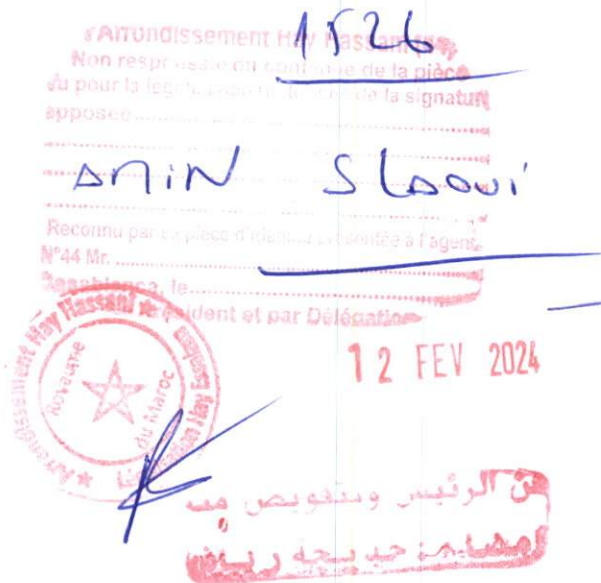 1526
Arrondissement Hay Hassani
Non responsable du contenu de la pièce
Vu pour la légalisation de la signature
apposée
AMIN SLAOUI
Reconnu par sa pièce d'identité présentée à l'agent
N°44 Mr.
Casablanca, le
Président et par Délégation
Arrondissement Hay Hassani
Royaume
du Maroc
12 FEV 2024
عن الرئيس وبتفويض منه
إمضاء: خديجة